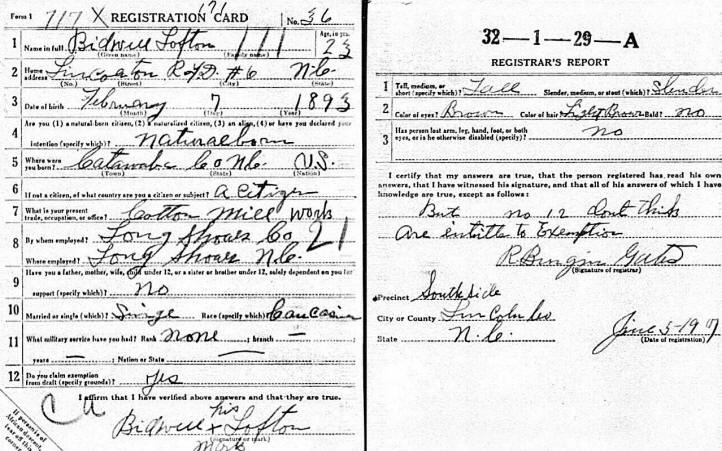 Form 1 717 X REGISTRATION CARD No. 36
1 Name in full Bidwell Lofton 111 Age, in yrs. 23
(Given name) (Family name)
2 Home address Lincolnton R.F.D. #6 N.C.
(No.) (Street) (City) (State)
3 Date of birth February 7 1893
(Month) (Day) (Year)
4 Are you (1) a natural-born citizen, (2) a naturalized citizen, (3) an alien, (4) or have you declared your
intention (specify which)? natural born
5 Where were you born? Catawaba Co N.C. U.S.
(Town) (State) (Nation)
6 If not a citizen, of what country are you a citizen or subject? A Citizen
7 What is your present trade, occupation, or office? Cotton Mill work
8 By whom employed? Long Shoals Co 21
Where employed? Long Shoals N.C.
9 Have you a father, mother, wife, child under 12, or a sister or brother under 12, solely dependent on you for
support (specify which)? no
10 Married or single (which)? Singe Race (specify which)? Caucasian
11 What military service have you had? Rank none ; branch —
years — ; Nation or State —
12 Do you claim exemption from draft (specify grounds)? yes
I affirm that I have verified above answers and that they are true.
his
Bidwell x Lofton
(Signature or mark)
Mark
If person is of African descent, tear off this corner
32—1—29—A
REGISTRAR'S REPORT
1 Tall, medium, or short (specify which)? Tall Slender, medium, or stout (which)? Slender
2 Color of eyes? Brown Color of hair? Light Brown Bald? no
3 Has person lost arm, leg, hand, foot, or both eyes, or is he otherwise disabled (specify)? no
I certify that my answers are true, that the person registered has read his own
answers, that I have witnessed his signature, and that all of his answers of which I have
knowledge are true, except as follows:
But no 12 dont think
are entitle to Exemption
(Signature of registrar)
Precinct Southside
City or County Lincoln Co
State N.C. June 5-1917
(Date of registration)